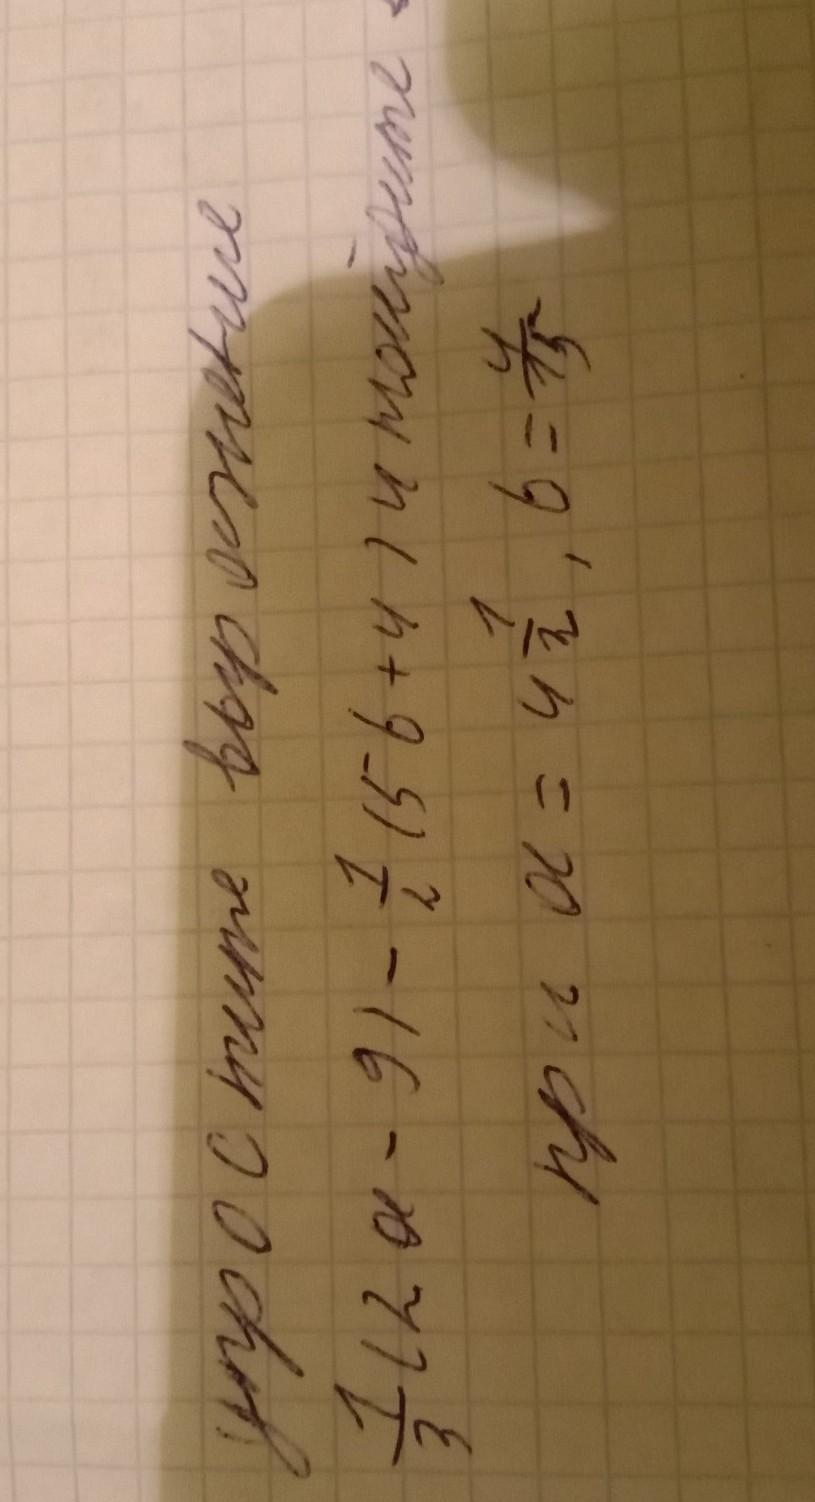 упростите выражение
1/3 (2a - 9) - 1/2 (5b + 4) и найдите
при a = 4 1/2, b = 4/15